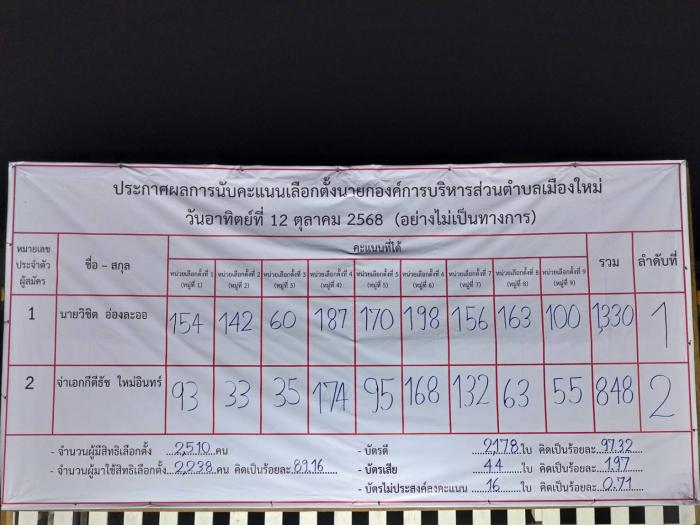 ประกาศผลการนับคะแนนเลือกตั้งนายกองค์การบริหารส่วนตำบลเมืองใหม่
วันอาทิตย์ที่ 12 ตุลาคม 2568 (อย่างไม่เป็นทางการ)
หมายเลขประจำตัวผู้สมัคร ชื่อ - สกุล คะแนนที่ได้ รวม ลำดับที่
หน่วยเลือกตั้งที่ 1 หน่วยเลือกตั้งที่ 2 หน่วยเลือกตั้งที่ 3 หน่วยเลือกตั้งที่ 4 หน่วยเลือกตั้งที่ 5 หน่วยเลือกตั้งที่ 6 หน่วยเลือกตั้งที่ 7 หน่วยเลือกตั้งที่ 8 หน่วยเลือกตั้งที่ 9
(หมู่ที่ 1) (หมู่ที่ 2) (หมู่ที่ 3) (หมู่ที่ 4) (หมู่ที่ 5) (หมู่ที่ 6) (หมู่ที่ 7) (หมู่ที่ 8) (หมู่ที่ 9)
1 นายวิชิต อ่องละออ 154 142 60 187 170 198 156 163 100 1,330 1
2 จ่าเอกกีตีธัช ใหม่อินทร์ 93 33 35 174 95 168 132 63 55 848 2
- จำนวนผู้มีสิทธิเลือกตั้ง 2,510 คน - บัตรดี 2,178 ใบ คิดเป็นร้อยละ 97.32
- จำนวนผู้มาใช้สิทธิเลือกตั้ง 2,238 คน คิดเป็นร้อยละ 89.16 - บัตรเสีย 44 ใบ คิดเป็นร้อยละ 1.97
- บัตรไม่ประสงค์ลงคะแนน 16 ใบ คิดเป็นร้อยละ 0.71